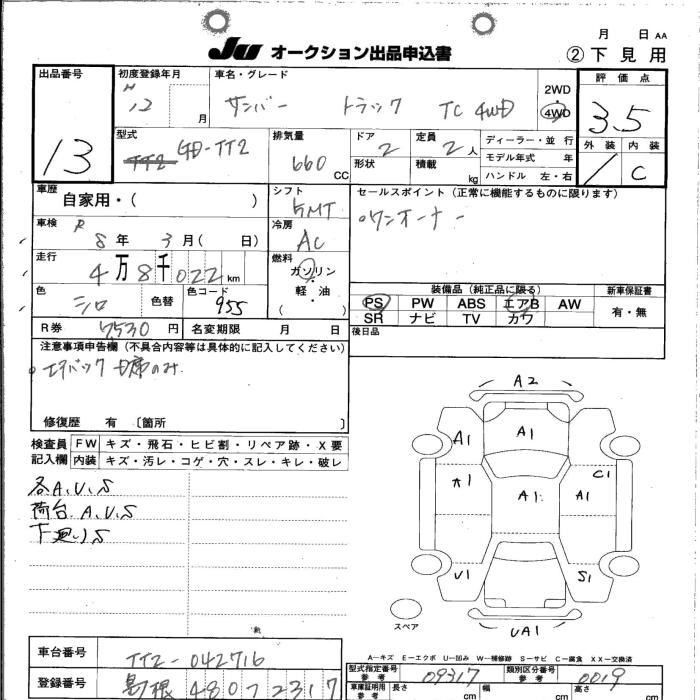 月 日 AA
JU オークション出品申込書
② 下見用
出品番号
13
初度登録年月
H 12 月
車名・グレード
サンバー トラック TC 4WD
2WD
4WD
評価点
3.5
外装 内装
1 C
型式
GD-TT2
排気量
660 CC
ドア
2
形状
定員
2 人
積載 kg
ディーラー・並行
モデル年式 年
ハンドル 左・右
車歴
自家用・( )
シフト
5MT
セールスポイント (正常に機能するものに限ります)
○ワンオーナー
車検
R 8 年 3 月 ( 日)
冷房
AC
走行
4 万 8 千 022 km
燃料
ガソリン
軽油
( )
色
シロ
色替
色コード
955
装備品 (純正品に限る)
PS PW ABS エアB AW
SR ナビ TV カワ
新車保証書
有・無
R券 7530 円
名変期限 月 日
後日品
注意事項申告欄 (不具合内容等は具体的に記入してください)
修復歴 有 〔箇所 〕
検査員記入欄
FW キズ・飛石・ヒビ割・リペア跡・X要
内装 キズ・汚レ・コゲ・穴・スレ・キレ・破レ
各A.U.S
荷台.A.U.S
下廻りS
A2
A1 A1
A1 A1 A1 C1
U1 S1
UA1
スペア
A－キズ E－エクボ U－凹み W－補修跡 S－サビ C－腐食 XX－交換済
車台番号
TT2-042716
登録番号
島根 480 7 2317
型式指定番号
参考
09317
類別区分番号
参考
0019
車庫証明用
参考
長さ cm 幅 cm 高さ cm